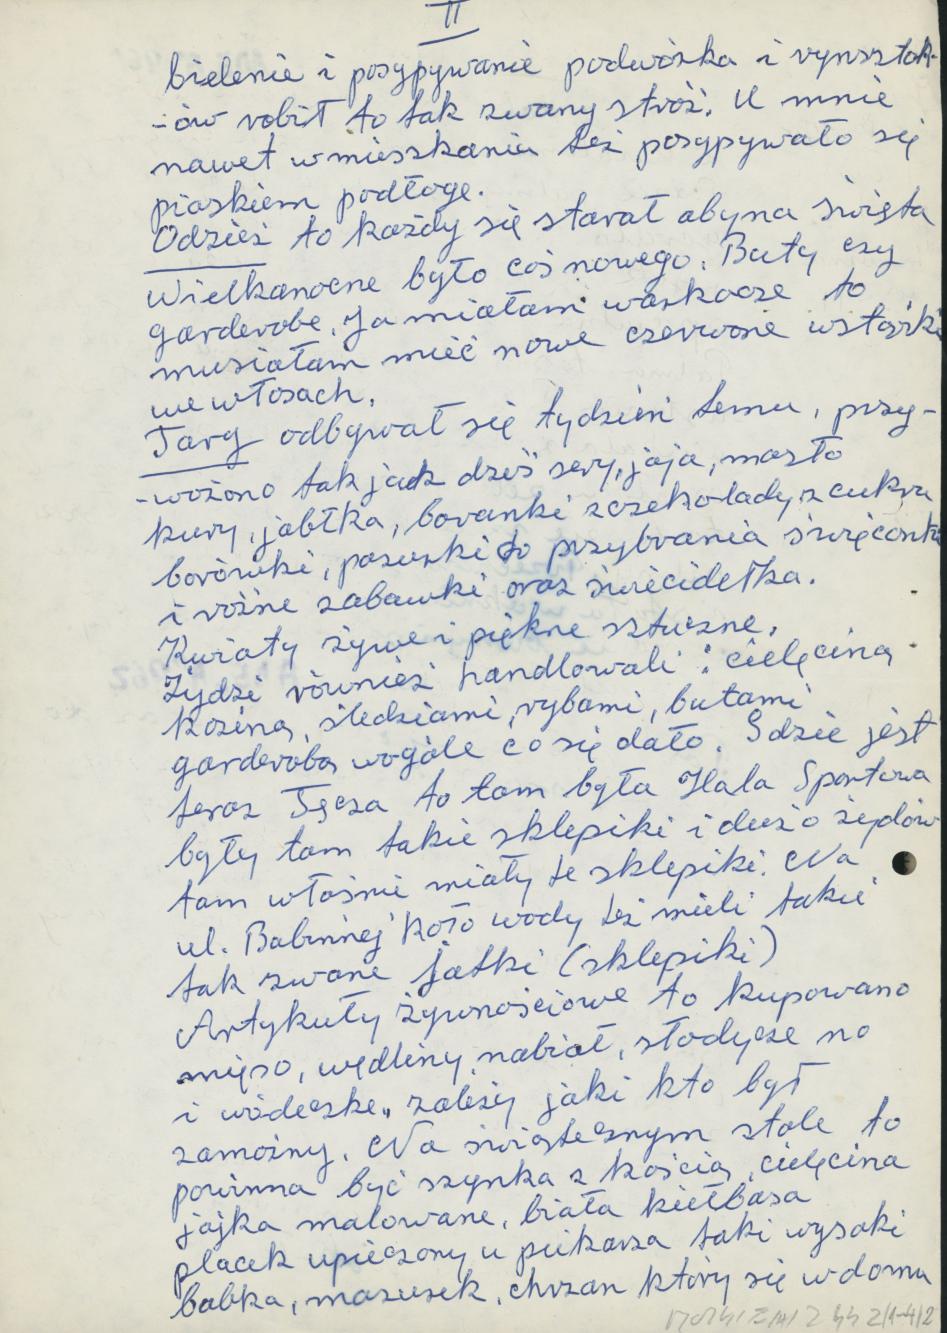 II
bielenie i posypywanie podwórka i rynsztok-
-ów robił to tak zwany stróż. U mnie
nawet w mieszkaniu też posypywało się
piaskiem podłogę.
Odzież to każdy się starał aby na święta
Wielkanocne było coś nowego. Buty czy
garderobe. Ja miałam warkocze to
musiałam mieć nowe czerwone wstążki
we włosach.
Targ odbywał się tydzień temu, przy-
-wożono tak jak dziś sery, jaja, masło
kury, jabłka, baranki z czekolady, z cukru
borówki, do przybrania święconki
i różne zabawki oraz świecidełka.
Kwiaty żywe i piękne sztuczne.
Żydzi również handlowali: cielęciną
koziną, śledziami, rybami, butami
garderobą wogóle co się dało. Gdzie jest
teraz Tęcza to tam była Hala Sportowa
były tam takie sklepiki i dużo żydów
tam właśnie miały te sklepiki. Na
ul. Babinnej koło wody też mieli takie
tak zwane jatki (sklepiki)
Artykuły żywnościowe to kupowano
mięso, wędliny, nabiał, słodycze no
i wódeczke, zależy jaki kto był
zamożny. Na świątecznym stole to
powinna być szynka z kością, cielęcina
jajka malowane, biała kiełbasa
placek upieczony u piekarza taki wysoki
babka, mazurek, chrzan który się w domu